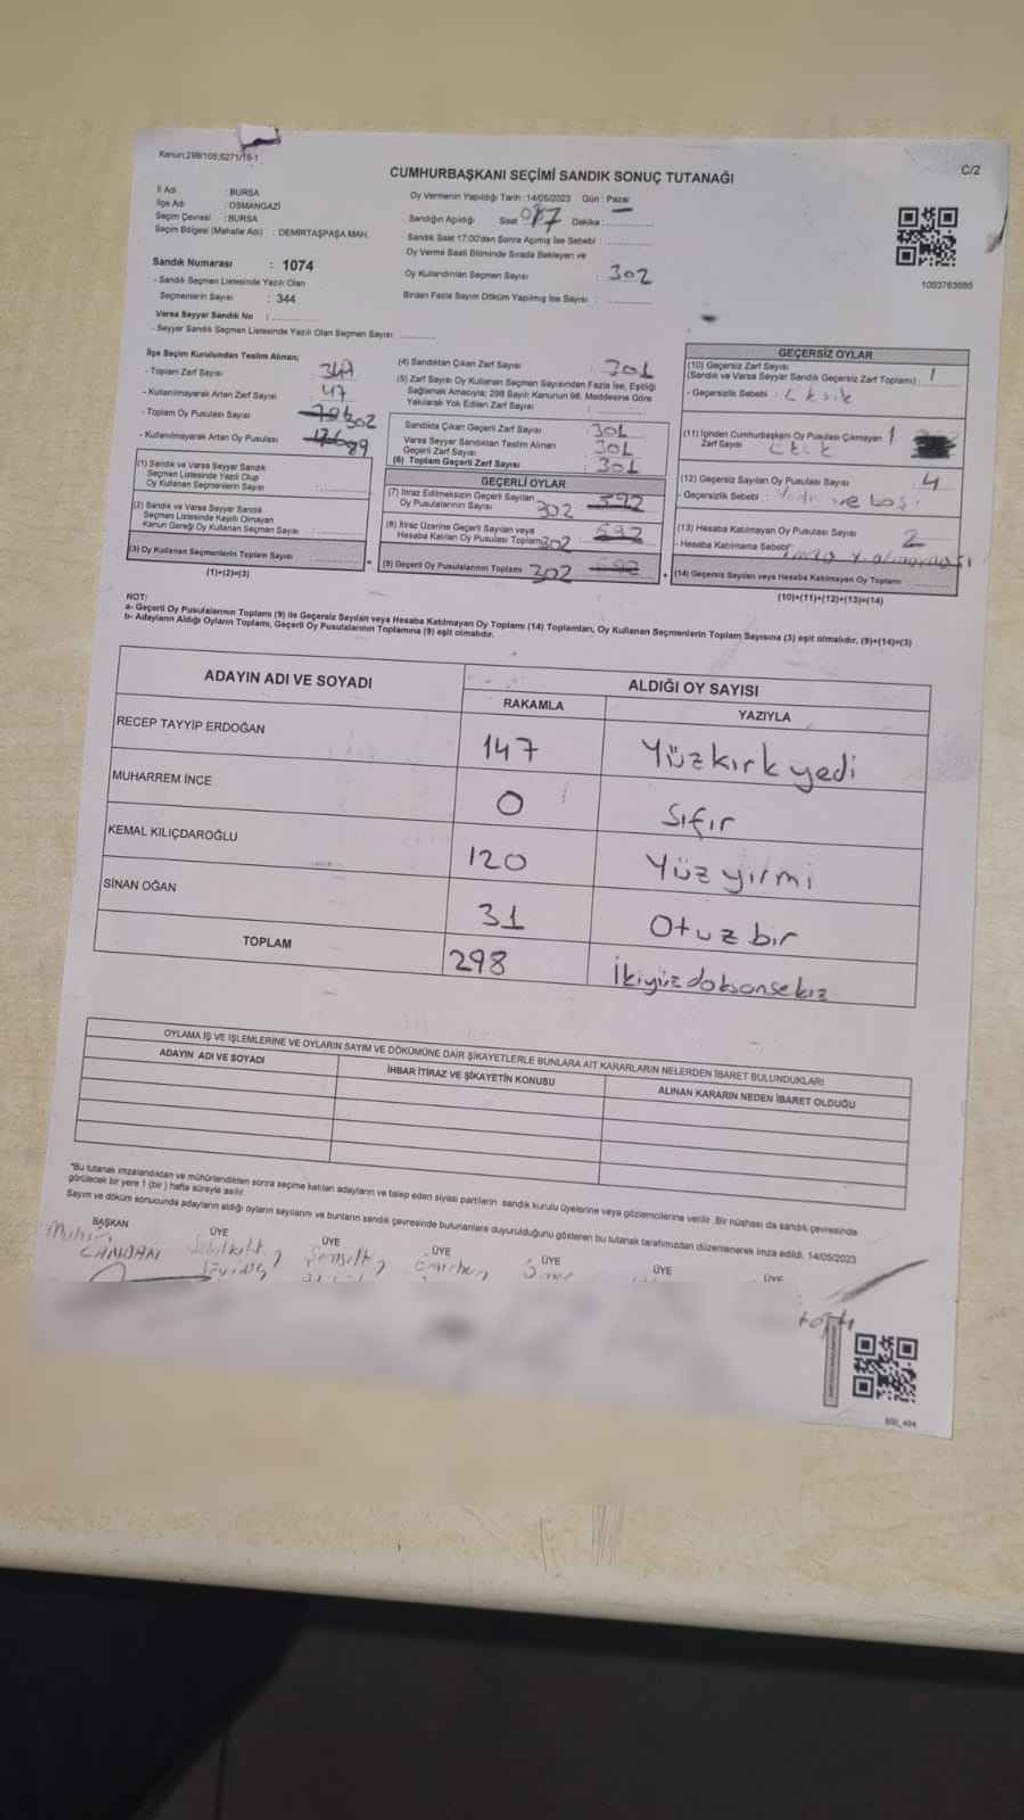 Kanun;298/105;6271/16-1
C/2
CUMHURBAŞKANI SEÇİMİ SANDIK SONUÇ TUTANAĞI
İl Adı : BURSA
İlçe Adı : OSMANGAZİ
Seçim Çevresi : BURSA
Seçim Bölgesi (Mahalle Adı) : DEMİRTAŞPAŞA MAH.
Oy Vermenin Yapıldığı Tarih :14/05/2023 Gün : Pazar
Sandığın Açıldığı Saat Dakika :
Sandık Saat 17:00'dan Sonra Açılmış İse Sebebi :
Oy Verme Saati Bitiminde Sırada Bekleyen ve
Oy Kullandırılan Seçmen Sayısı : 302
Birden Fazla Sayım Döküm Yapılmış İse Sayısı :
1093763685
Sandık Numarası : 1074
- Sandık Seçmen Listesinde Yazılı Olan
Seçmenlerin Sayısı : 344
Varsa Seyyar Sandık No :
- Seyyar Sandık Seçmen Listesinde Yazılı Olan Seçmen Sayısı
İlçe Seçim Kurulundan Teslim Alınan;
- Toplam Zarf Sayısı
- Kullanılmayarak Artan Zarf Sayısı 47
- Toplam Oy Pusulası Sayısı
- Kullanılmayarak Artan Oy Pusulası
(1) Sandık ve Varsa Seyyar Sandık
Seçmen Listesinde Yazılı Olup
Oy Kullanan Seçmenlerin Sayısı
(2) Sandık ve Varsa Seyyar Sandık
Seçmen Listesinde Kayıtlı Olmayan
Kanun Gereği Oy Kullanan Seçmen Sayısı
(3) Oy Kullanan Seçmenlerin Toplam Sayısı
(1)+(2)=(3)
(4) Sandıktan Çıkan Zarf Sayısı 301
(5) Zarf Sayısı Oy Kullanan Seçmen Sayısından Fazla İse, Eşitliği
Sağlamak Amacıyla; 298 Sayılı Kanunun 98. Maddesine Göre
Yakılarak Yok Edilen Zarf Sayısı :
Sandıkta Çıkan Geçerli Zarf Sayısı 301
Varsa Seyyar Sandıktan Teslim Alınan
Geçerli Zarf Sayısı 301
(6) Toplam Geçerli Zarf Sayısı 301
GEÇERLİ OYLAR
(7) İtiraz Edilmeksizin Geçerli Sayılan
Oy Pusulalarının Sayısı 302 592
(8) İtiraz Üzerine Geçerli Sayılan veya
Hesaba Katılan Oy Pusulası Toplamı 302 592
(9) Geçerli Oy Pusulalarının Toplamı 302
GEÇERSİZ OYLAR
(10) Geçersiz Zarf Sayısı
(Sandık ve Varsa Seyyar Sandık Geçersiz Zarf Toplamı) : 1
- Geçersizlik Sebebi :
(11) İçinden Cumhurbaşkanı Oy Pusulası Çıkmayan 1
Zarf Sayısı
(12) Geçersiz Sayılan Oy Pusulası Sayısı 4
- Geçersizlik Sebebi : ve boş
(13) Hesaba Katılmayan Oy Pusulası Sayısı 2
- Hesaba Katılmama Sebebi
(14) Geçersiz Sayılan veya Hesaba Katılmayan Oy Toplamı
(10)+(11)+(12)+(13)=(14)
NOT:
a- Geçerli Oy Pusulalarının Toplamı (9) ile Geçersiz Sayılan veya Hesaba Katılmayan Oy Toplamı (14) Toplamları, Oy Kullanan Seçmenlerin Toplam Sayısına (3) eşit olmalıdır. (9)+(14)=(3)
b- Adayların Aldığı Oyların Toplamı, Geçerli Oy Pusulalarının Toplamına (9) eşit olmalıdır.
ADAYIN ADI VE SOYADI ALDIĞI OY SAYISI
RAKAMLA YAZIYLA
RECEP TAYYİP ERDOĞAN 147 Yüzkırk yedi
MUHARREM İNCE 0 Sıfır
KEMAL KILIÇDAROĞLU 120 Yüz yirmi
SİNAN OĞAN 31 Otuz bir
TOPLAM 298 İkiyüz doksansekiz
OYLAMA İŞ VE İŞLEMLERİNE VE OYLARIN SAYIM VE DÖKÜMÜNE DAİR ŞİKAYETLERLE BUNLARA AİT KARARLARIN NELERDEN İBARET BULUNDUKLARI
ADAYIN ADI VE SOYADI İHBAR İTİRAZ VE ŞİKAYETİN KONUSU ALINAN KARARIN NEDEN İBARET OLDUĞU
*Bu tutanak imzalandıktan ve mühürlendikten sonra seçime katılan adayların ve talep eden siyasi partilerin sandık kurulu üyelerine veya gözlemcilerine verilir. Bir nüshası da sandık çevresinde
görülecek bir yere 1 (bir) hafta süreyle asılır.
Sayım ve döküm sonucunda adayların aldığı oyların sayılarını ve bunların sandık çevresinde bulunanlara duyurulduğunu gösteren bu tutanak tarafımızdan düzenlenerek imza edildi. 14/05/2023
BAŞKAN ÜYE ÜYE ÜYE ÜYE ÜYE ÜYE
CANDAN